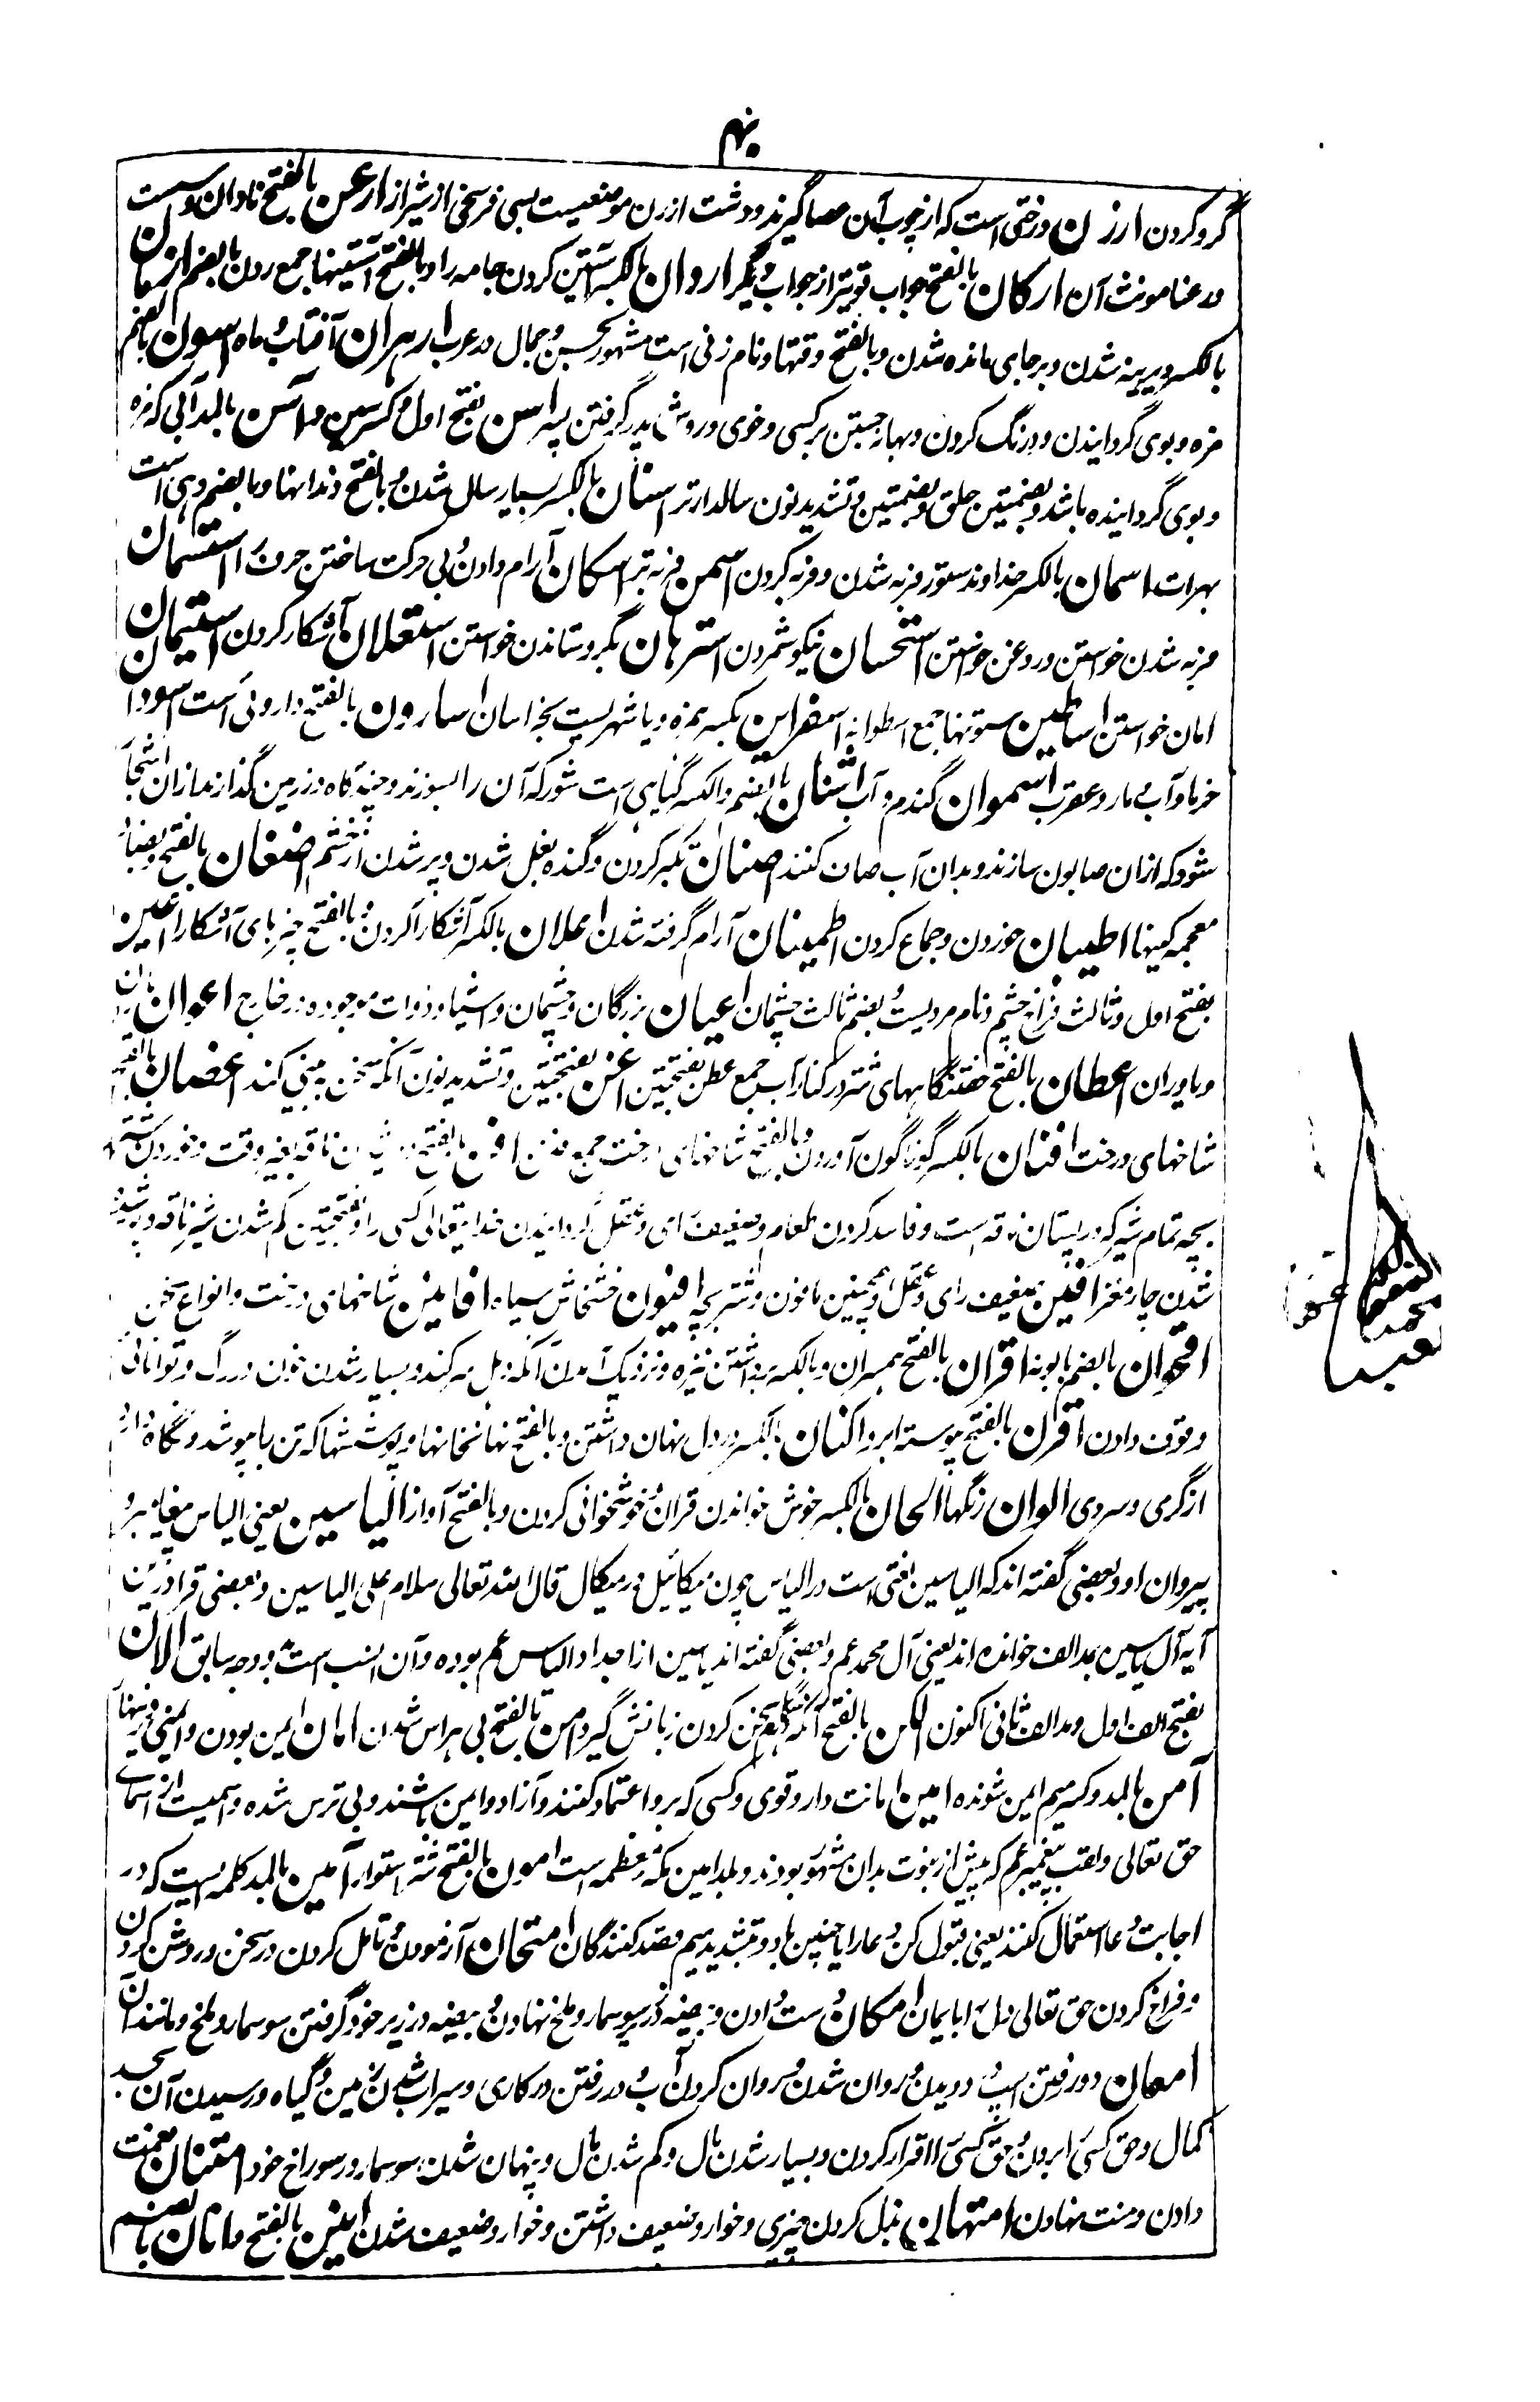 نهم
گرو کردن ارزن درختی است که از چوب آن عصا گیرند و دشت ارزن موضعیست بسی فرسخی از شیراز ارعن بالفتح نادان و سست
و رعنا مونث آن ارکان بالفتح جواب قویتر از جواب دیگر اردان بالکسر آستین کردن جامه را و بالفتح آستینها جمع ردن بالضم ازمان
بالکسر دیرینه شدن و بر جای مانده شدن و بالفتح وقتها و نام زنی است مشهور بحسن و جمال در عرب ازهران آفتاب و ماه اسون بالضم
مزه و بوی گردانیدن و درنگ کردن و بهانه جستن بر کسی و خوی و روش پدر گرفتن پسر اسن بفتح اول و کسر سین و آسن بالمد آبی که مزه
و بوی گردانیده باشد و بضمتین خلق و بضمتین و تشدید نون سالدارتر اسنان بالکسر بسیار سال شدن و بالفتح دندانها و بالضم دهی است
بهرات اسمان بالکسر خداوند ستور فربه شدن و فربه کردن اسمن فربه تر اسکان آرام دادن و بی حرکت ساختن حرف را استسمان
فربه شدن خواستن و روغن خواستن استحسان نیکو شمردن استرهان بگرو ستاندن خواستن استعلان آشکار کردن استیمان
امان خواستن اساطین ستونها جمع اسطوانه اسفراین بکسر همزه و یا شهریست بخراسان اسارون بالفتح داروئی است اسودان
خرما و آب و مار و عقرب اسمران گندم و آب اشنان بالضم و الکسر گیاهی است شور که آن را بسوزند و چندگاه در زمین گذارند ازان اشخار
شود که ازان صابون سازند و بدان آب صاف کنند اصنان تکبر کردن و گنده بغل شدن و پر شدن از خشم اضغان بالفتح و بضاد
معجمه کینها اطیبان خوردن و جماع کردن اطمینان آرام گرفته شدن اعلان بالکسر آشکارا کردن و بالفتح چیزهای آشکارا اعین
بفتح اول و ثالث فراخ چشم و نام مردیست و بضم ثالث چشمان اعیان بزرگان و چشمان و اشیا و ذوات موجوده در خارج اعوان یاران
و یاوران اعطان بالفتح خفتنگاههای شتر در کنار آب جمع عطن بفتحتین اغن بفتحتین و تشدید نون آنکه سخن به بینی کند اغصان بالفتح
شاخهای درخت افنان بالکسر گوناگون آوردن و بالفتح شاخهای درخت جمع فنن افن بالفتح ناقه بغیر وقت و خوردن شتر
بچه تمام شیر که در پستان ناقه است و فاسد کردن طعام و ضعیف رای و عقل گردانیدن خدایتعالی کسی را و بفتحتین کم شدن شیر ناقه و
شدن چارمغز افین ضعیف رای و عقل و همچنین مافون و شتر بچه افیون خشخاش سیاه افانین شاخهای درخت و انواع سخن
اقحوان بالضم بابونه اقران بالفتح همسران و بالکسر برداشتن نیزه و نزدیک آمدن آنکه دمل سر کند و بسیار شدن خون در رگ و توانائی
و قوت دادن اقرن بالفتح پیوسته ابرو اکنان بالکسر در دل نهان داشتن و بالفتح نهانخانها و پوششها که تن بآن پوشند و نگاه دارند
از گرمی و سردی الوان رنگها الحان بالکسر خوش خواندن قرآن و خوشخوانی کردن و بالفتح آوازا الیاسین یعنی الیاس پیغامبر و
پیروان او و بعضی گفته اند که الیاسین لغتی است در الیاس چون میکائیل در میکال قال الله تعالی سلام علی الیاسین و بعضی قرا درین
آیه آل یاسین بمد الف خوانده اند یعنی آل محمد عم و بعضی گفته اند یاسین از اجداد الیاس عم بوده و آن انسب است بدو وجه سابق الان
بفتح الف اول و مد الف ثانی اکنون الکن بالفتح آنکه هنگام سخن کردن زبانش گیرد امن بالفتح بی هراس شدن امان ایمن بودن و ایمنی و زینهار
آمن بالمد و کسر میم ایمن شونده امین امانت دار و قوی و کسی که برو اعتماد کنند و آزاد و ایمن باشند و بی ترس شده و اسمیست از اسمای
حق تعالی و لقب پیغمبر عم که پیش از نبوت بدان مشهور بودند و بلد امین مکه معظمه است امون بالفتح شتر استوار آمین بالمد کلمه ایست که در
اجابت دعا استعمال کنند یعنی قبول کن دعا را یا چنین باد و بتشدید میم قصد کنندگان امتحان آزمودن و تامل کردن در سخن و روشن کردن
و فراخ کردن حق تعالی دل را بایمان امکان دست دادن و بیضه زیر سوسمار و ملخ نهادن و بیضه در زیر خود گرفتن سوسمار و ملخ و مانند آن
امعان دور رفتن اسپ و دویدن و روان شدن و روان کردن آب و در رفتن در کاری و سیراب شدن زمین و گیاه و رسیدن آن بحد
کمال و حق کسی را بردن و حق کسی را اقرار کردن و بسیار شدن مال و کم شدن مال و پنهان شدن سوسمار در سوراخ خود امتنان نعمت
دادن و منت نهادن امتهان بذل کردن چیزی و خوار و ضعیف داشتن و خوار و ضعیف شدن انین بالفتح و انان بالضم